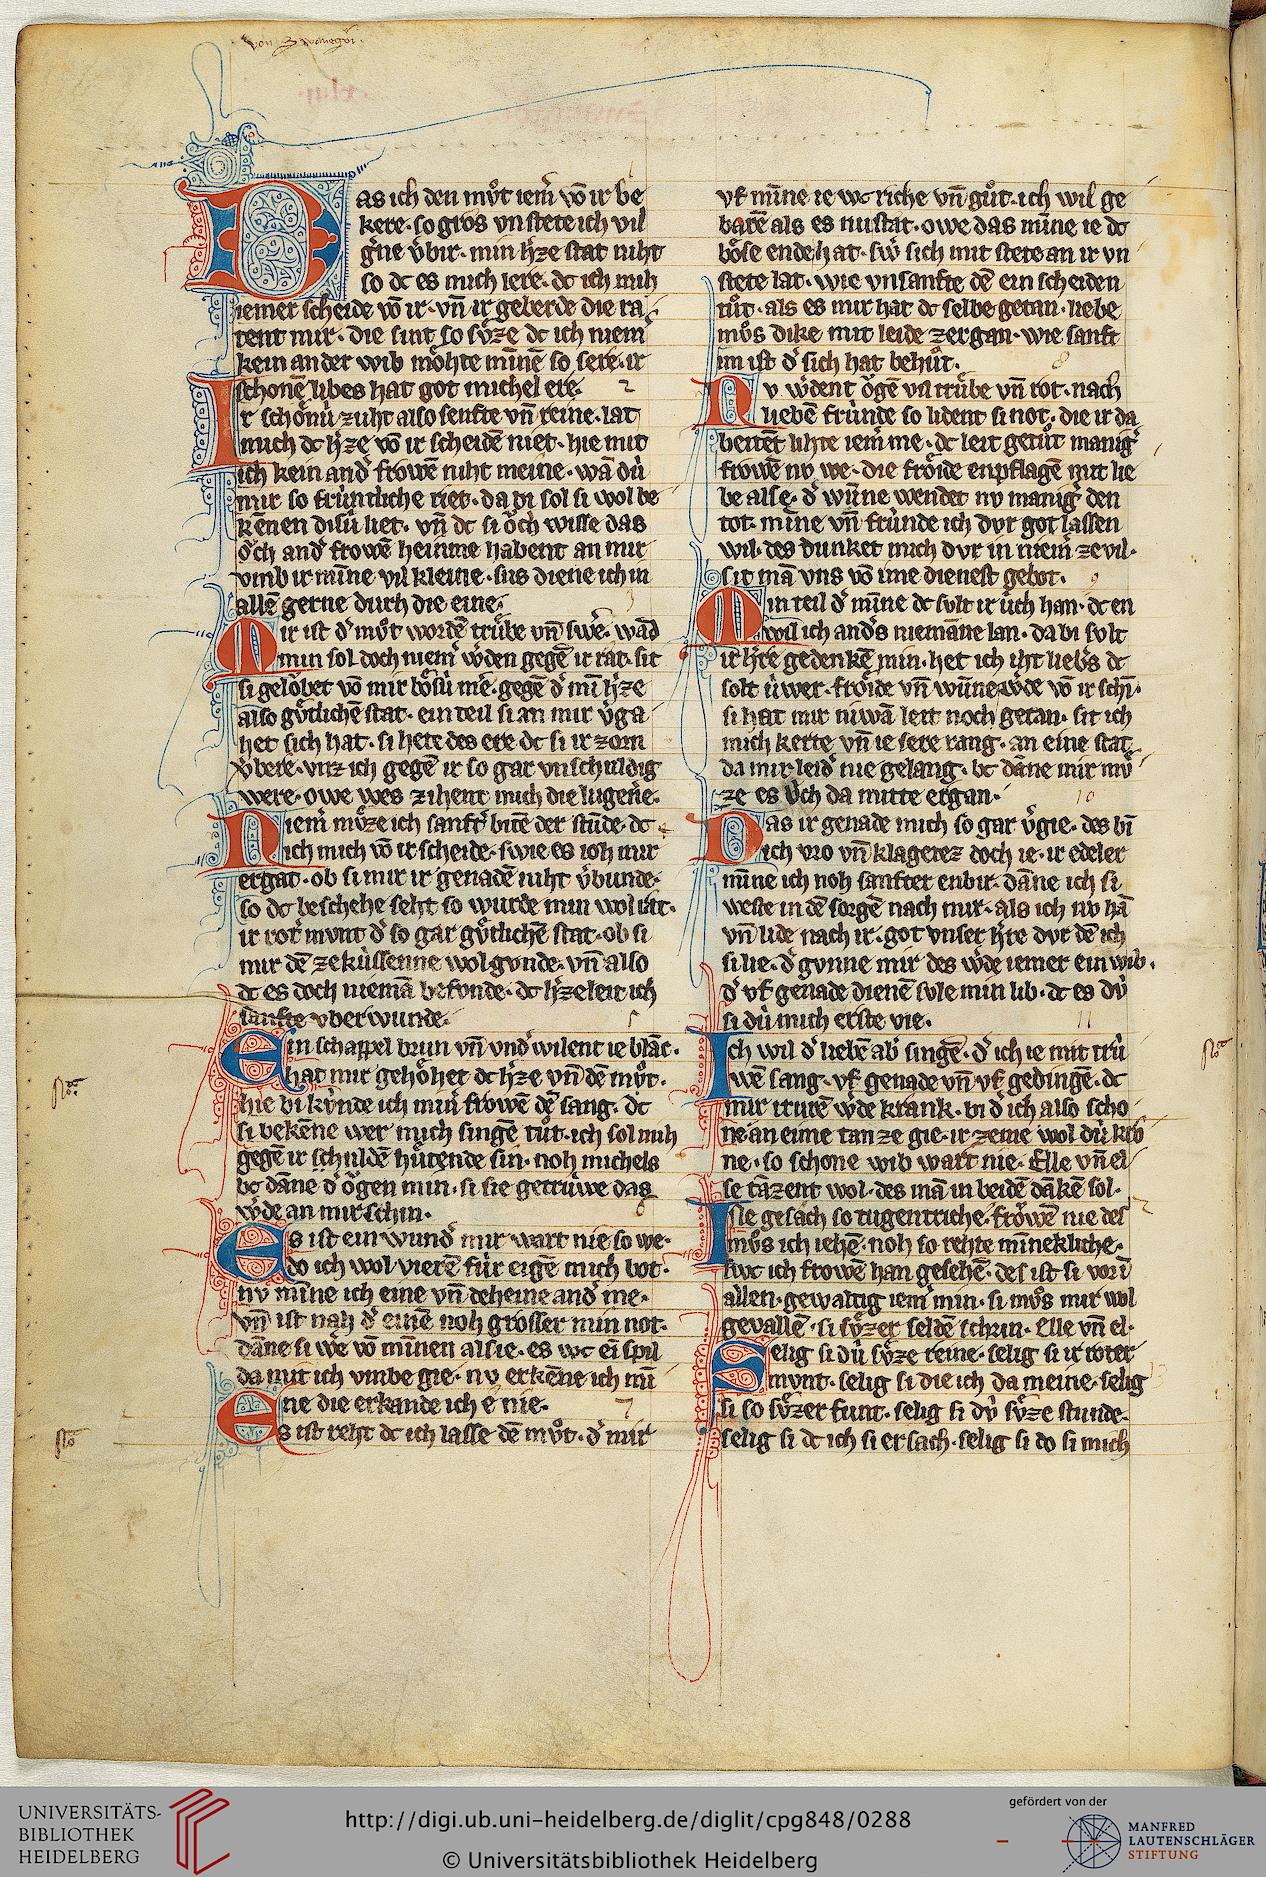 von Swanegoͤi.
Das ich den muͦt iem̄ vō ir be
kere. so gros vn̄ stete ich vil
g̾ne v̾bir. min h̾ze stat niht
so dc es mich lere. dc ich mih
iemer scheide vō ir. vn̄ ir geberde die ra
tent mir. die sint so suͤze dc ich niem̾
kein ander wib moͤhte minnē so sere. ir
schonē libes hat got michel ere. 2
Ir schoͤnú zuht also senfte vn̄ reine. lat
mich dc h̾ze vō ir scheidē niet. hie mit
ich kein and̾ frowē niht meine. wā dú
mir so frúntliche riet. da bi sol si wol be
kēnen disú liet. vn̄ dc si oͮch wisse das
oͮch and̾ frowē heinme habent an mir
vmb ir mīne vil kleine. sus diene ich in
allē gerne durch die eine. 3
Mir ist d̾ muͦt wordē truͤbe vn̄ swe̾. wād
min sol doch niem̾ w̾den gegē ir rat. sit
si geloͮbet vō mir boͤsú me̾. gegē d̾ mī h̾ze
also guͤtlichē stat. ein teil si an mir v̾ga
het sich hat. si hete des ere dc si ir zorn
v̾bere. vnz ich gegē ir so gar vnschuldig
were. owe wes zihent mich die lugene̾.
Niem̾ muͤze ich sanft̾ bitē der stūde. dc
ich mich vō ir scheide. swie es ioh mir
ergat. ob si mir ir genadē niht v̾bunde.
so dc beschehe seht so wurde min wol rat.
ir rot̾ mvnt d̾ so gar guͤtlichē stat. ob si
mir dē ze kússenne wol gonde. vn̄ also
dc es doch niemā befonde. dc h̾zeleit ich
sanfte vberwunde. 5
Ein schappel brun vn̄ vnd̾wilent ie blāc.
hat mir gehoͤhet dc h̾ze vn̄ dē muͦt.
hie bi kv́nde ich mın̾ frowē dē sang. dc
si bekēne wer mich singē tuͦt. ich sol mih
gegē ir schuldē huͤtende sin. noh michels
bc dāne d̾ oͮgen min. si sie getrúwe das
w̾de an mir schin. 6
Es ist ein wund̾ mir wart nie so we.
do ich wol vierē fúr eigē mich bot.
nv mīne ich eine vn̄ deheine and̾ me.
vn̄ ist nah d̾ einē noh grosser min not.
dāne si we̾ vō mīnen alsie. es wc eī spil
da mit ich vmbe gie. nv erkēne ich mī
ne die erkande ich e nie. 7
Es ist reht dc ich lasse dē muͦt. d̾ mir
vf mīne ie wc riche vn̄ guͦt. ich wil ge
barē als es nu stat. owe das mīne ie dc
boͤse ende hat. sw̾ sich mit stete an ir vn
stete lat. wie vnsanfte dē ein scheiden
tuͦt. als es mir hat dc selbe getan. liebe
muͦs dike mit leide zergan. wie sanft
im ist d̾ sich hat behuͦt. 8
Nv w̾dent oͮgē vil truͤbe vn̄ rot. nach
liebē frúnde so lident si not. die ir da
beitēt lihte iem̾ me. dc leit getuͦt manig̾
frowē nv we. die froͤide enpflagē mit lie
be alse. d̾ wūne wendet nv manig̾ den
tot. mīne vn̄ frúnde ich dvr got lassen
wil. des dunket mich dvr in niem̾ ze vil.
sit mā vns vō ime dienest gebot. 9
Min teil d̾ mīne dc svlt ir úch han. dc en
wil ich and̾s niemāne lan. da bi svlt
ir h̾re gedenkē min. het ich iht lieb̾s dc
solt úwer. froͤide vn̄ wūne w̾de vō ir schī.
si hat mir niwā leit noch getan. sit ich
mich kerte vn̄ ie sere rang. an eine stat
da mir leid̾ nie gelang. bc dāne mir muͤ
ze es v́ch da mitte ergan. 10
Das ir genade mich so gar v̾gie. des bī
ich vro vn̄ klagetez doch ie. ir edeler
mīne ich noh sanfter enbir. dāne ich si
weste in dē sorgē nach mir. als ich nv hā
vn̄ lide nach ir. got vnser h̾re dvr dē ich
si lie. d̾ gvnne mir des w̾de iemer ein wib.
d̾ vf genade dienē svle min lib. dc es dv́
si dú mich erste vie. 11
Ich wil d̾ liebē ab̾ singē. d̾ ich ie mit trú
wē sang. vf genade vn̄ vf gedingē. dc
mir trurē w̾de krank. bi d̾ ich also scho
ne an eime tanze gie. ir zeme wol dú kro
ne. so schone wib wart nie. Elle vn̄ el
se tāzent wol. des mā in beidē dākē sol.
Isie gesach so tugentriche. froͮwē nie des
muͦs ich iehē. noh so rehte mīnekliche.
swc ich frowē han gesehē. des ist si vor ī
allen. gewaltig iem̾ min. si muͦs mir wol
gevallē. si suͤzer seldē schrin. Elle vn̄ el.
Selig si dú suͤze reine. selig si ir roter
mvnt. selig si die ich da meine. selig
si so suͤzer funt. selig si dv́ suͤze stunde.
selig si dc ich si ersach. selig si do si mich
UNIVERSITÄTS-
BIBLIOTHEK
HEIDELBERG
http://digi.ub.uni-heidelberg.de/diglit/cpg848/0288
© Universitätsbibliothek Heidelberg
gefördert von der
MANFRED
LAUTENSCHLÄGER
STIFTUNG